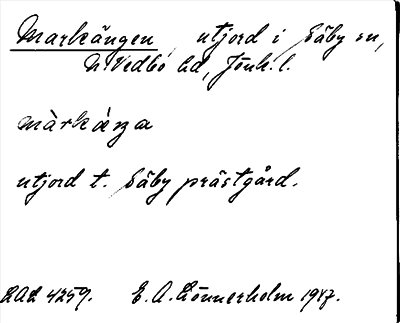 Markängen, utjord i Säby sn,
N. Vedbo hd, Jönk. l.
màrkáŋa
utjord t. Säby prästgård.
LAL 4259. E. A. Lönnerholm 1947.